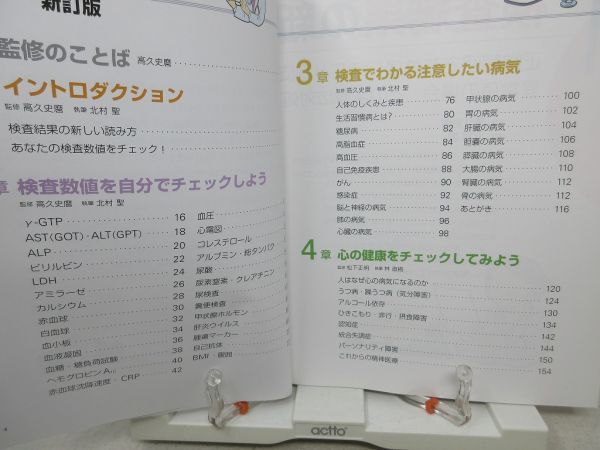 新訂版
監修のことば 高久史麿
イントロダクション
監修 高久史麿 執筆 北村 聖
検査結果の新しい読み方
あなたの検査数値をチェック!
章 検査数値を自分でチェックしよう
監修 高久史麿 執筆 北村 聖
γ-GTP 16
AST(GOT)・ALT(GPT) 18
ALP 20
ビリルビン 22
LDH 24
アミラーゼ 26
カルシウム 28
赤血球 30
白血球 32
血小板 34
血液凝固 36
血糖・糖負荷試験 38
ヘモグロビンA 40
赤血球沈降速度・CRP 42
血圧
心電図
コレステロール
アルブミン・総タンパク
尿酸
尿素窒素・クレアチニン
尿検査
糞便検査
甲状腺ホルモン
肝炎ウイルス
腫瘍マーカー
自己抗体
BMI・腹囲
3章 検査でわかる注意したい病気
監修 高久史麿 執筆 北村 聖
人体のしくみと疾患 76
生活習慣病とは? 80
糖尿病 82
高脂血症 84
高血圧 86
自己免疫疾患 88
がん 90
感染症 92
脳と神経の病気 94
肺の病気 96
心臓の病気 98
甲状腺の病気 100
胃の病気 102
肝臓の病気 104
胆嚢の病気 106
膵臓の病気 108
大腸の病気 110
腎臓の病気 112
骨の病気 112
あとがき 116
4章 心の健康をチェックしてみよう
監修 松下正明 執筆 林 直樹
人はなぜ心の病気になるのか 120
うつ病・躁うつ病(気分障害) 124
アルコール依存 130
ひきこもり・非行・摂食障害 134
認知症 142
統合失調症 144
パーソナリティ障害 150
これからの精神医療 154
4
actto